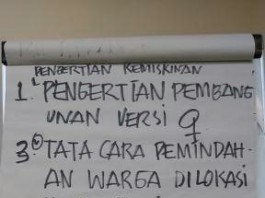 PENGERTIAN KEMISKINAN
1. PENGERTIAN PEMBANG
UNAN VERSI ♀
3. TATA CARA PEMINDAH-
AN WARGA DI LOKASI